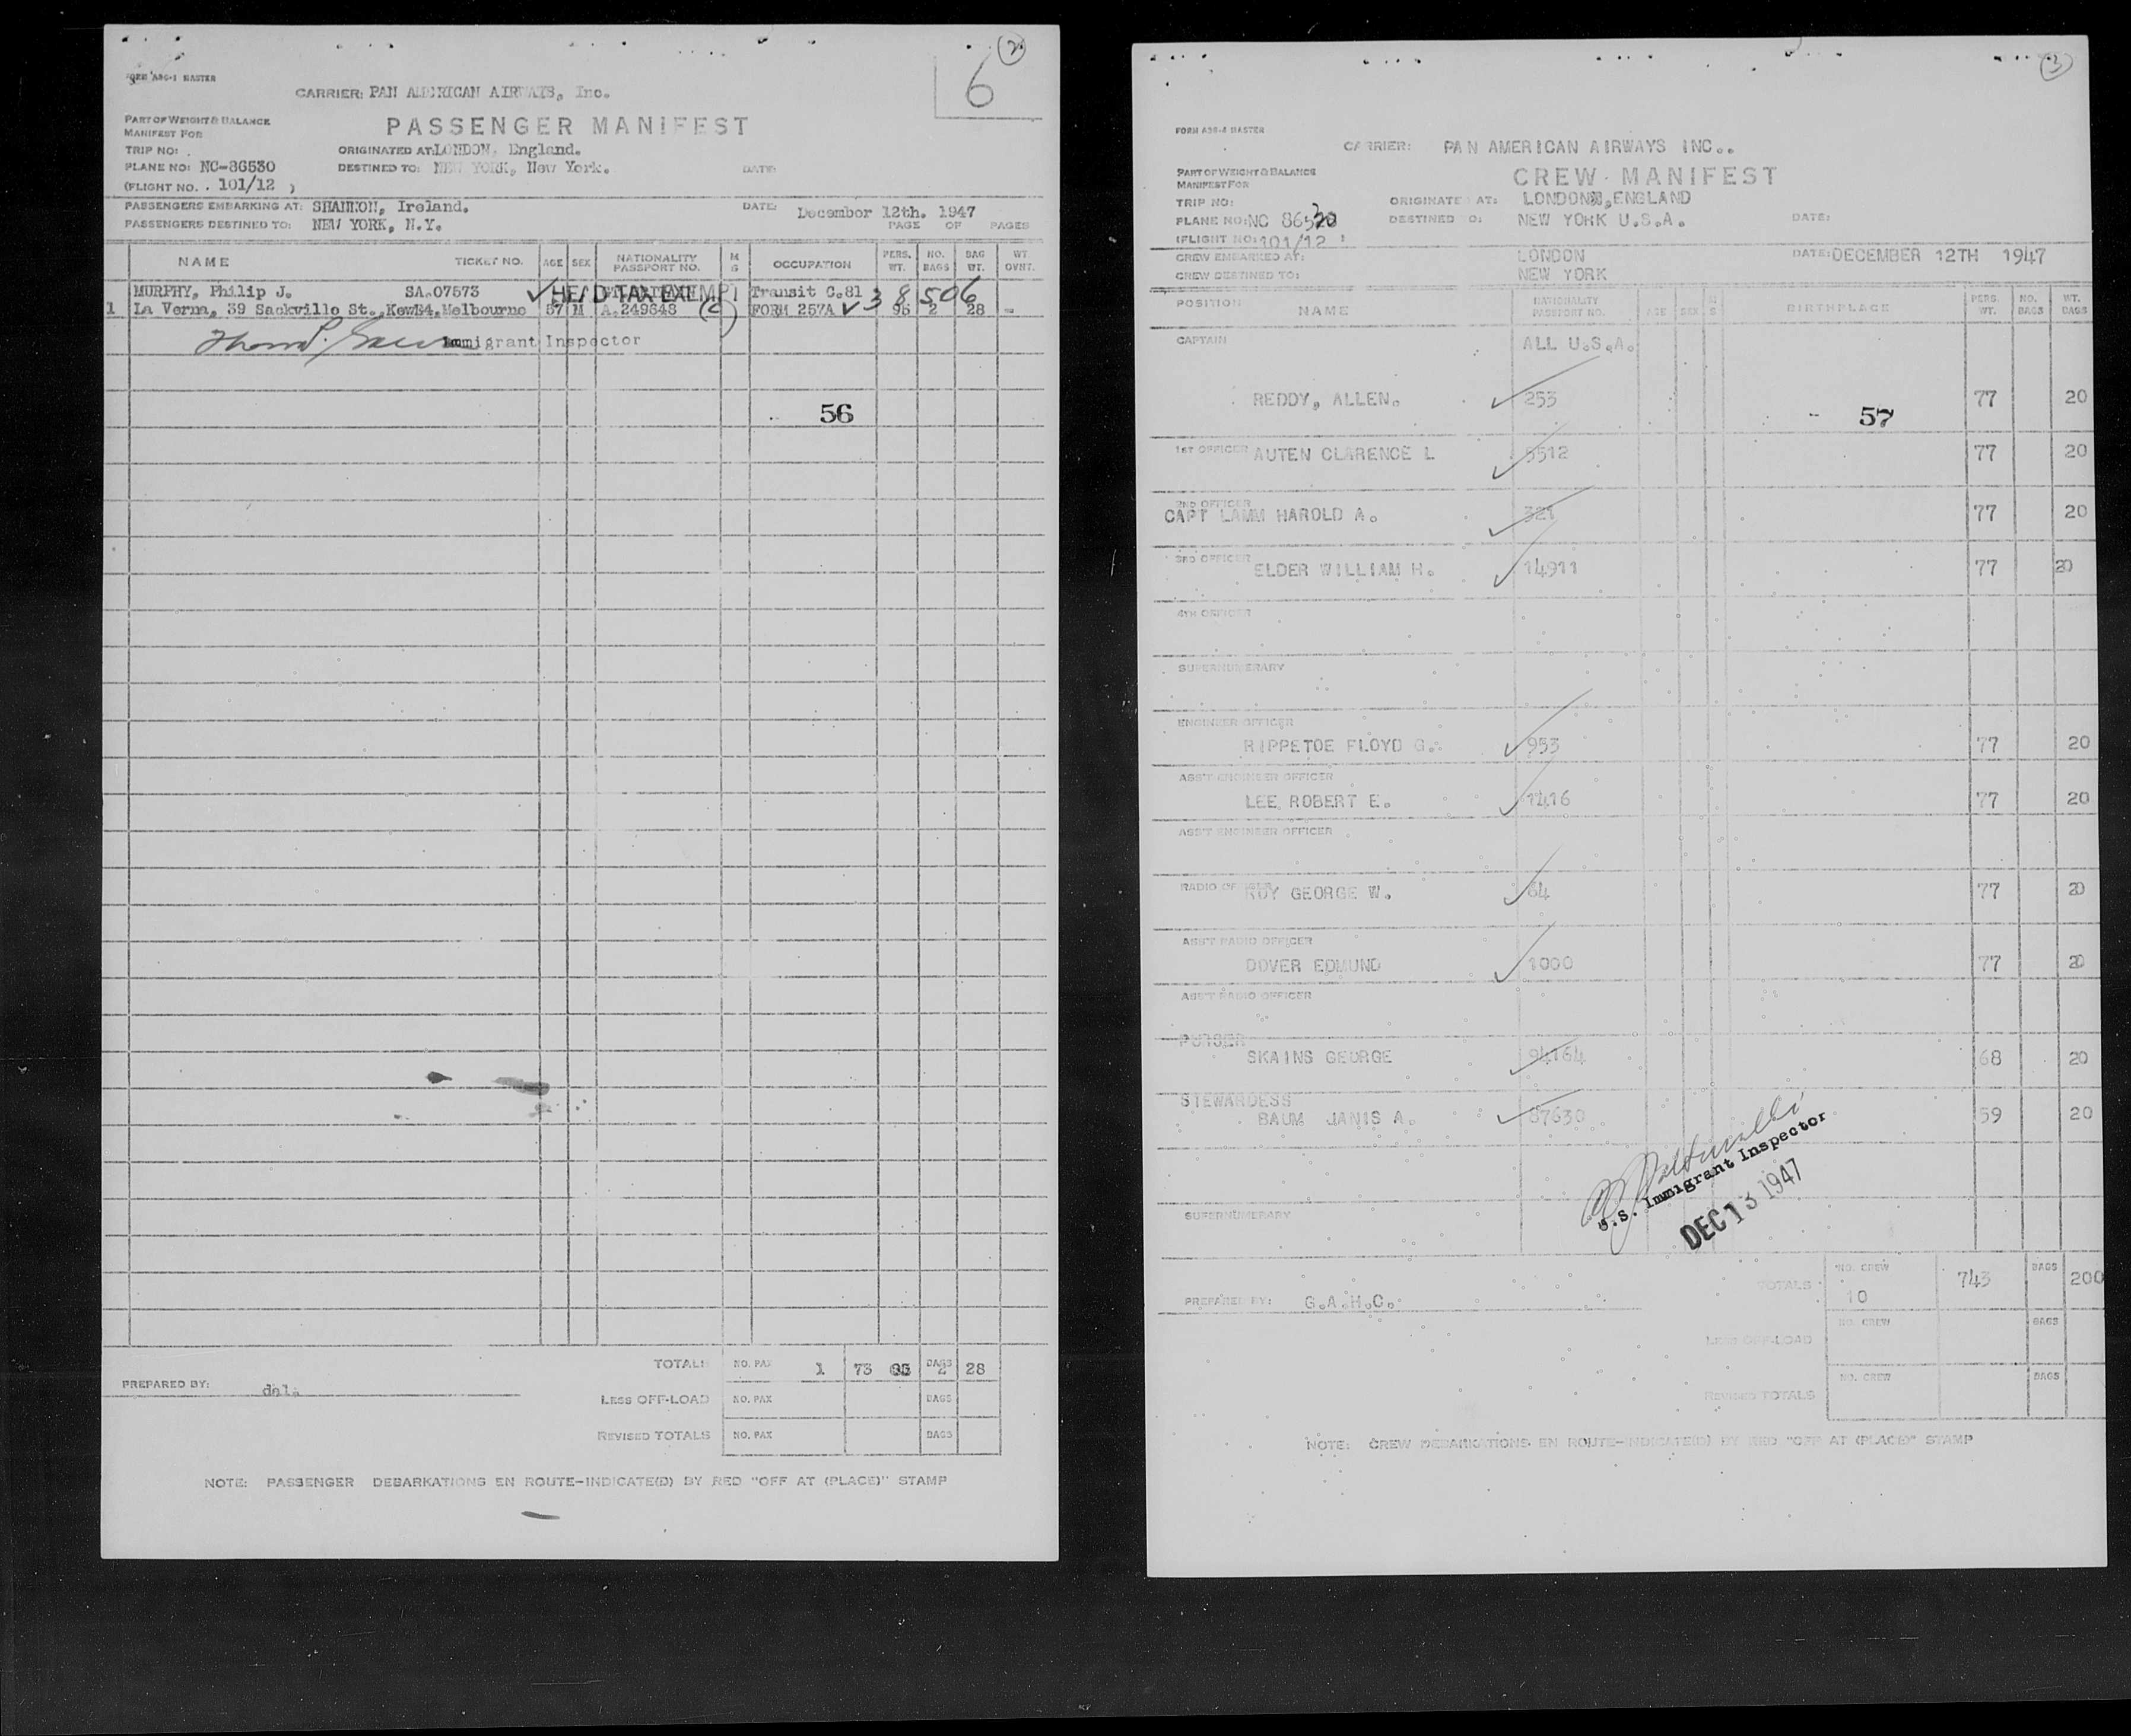 2
6
FORM A36-1 MASTER
CARRIER: PAN AMERICAN AIRWAYS, Inc.
PART OF WEIGHT & BALANCE
MANIFEST FOR
PASSENGER MANIFEST
TRIP NO:
ORIGINATED AT: LONDON, England.
PLANE NO: NC-86530
DESTINED TO: NEW YORK, New York.
DATE:
(FLIGHT NO. 101/12 )
PASSENGERS EMBARKING AT: SHANNON, Ireland.
DATE: December 12th. 1947
PASSENGERS DESTINED TO: NEW YORK, N.Y.
PAGE OF PAGES
NAME TICKET NO. AGE SEX NATIONALITY PASSPORT NO. M S OCCUPATION PERS. WT. NO. BAGS BAG WT. WT OVNT.
MURPHY, Philip J. SA.07573 HEAD TAX EXEMPT Transit C.81 3 8 506
1 La Verna, 39 Sackville St., Kew E4, Melbourne 57 M A.249648 (c) FORM 257A 2 28
Immigrant Inspector
56
TOTALS NO. PAX 1 73 BAGS 2 28
PREPARED BY:
LESS OFF-LOAD NO. PAX BAGS
REVISED TOTALS NO. PAX BAGS
NOTE: PASSENGER DEBARKATIONS EN ROUTE-INDICATE(D) BY RED "OFF AT (PLACE)" STAMP
3
FORM A36-4 MASTER
CARRIER: PAN AMERICAN AIRWAYS INC..
PART OF WEIGHT & BALANCE
MANIFEST FOR
CREW MANIFEST
TRIP NO:
ORIGINATE AT: LONDON, ENGLAND
PLANE NO: NC 86530
DESTINED TO: NEW YORK U.S.A.
DATE:
(FLIGHT NO: 101/12 )
CREW EMBARKED AT: LONDON
DATE: DECEMBER 12TH 1947
CREW DESTINED TO: NEW YORK
POSITION NAME NATIONALITY PASSPORT NO. AGE SEX M S BIRTHPLACE PERS. WT. NO. BAGS WT. BAGS
CAPTAIN ALL U.S.A.
REDDY, ALLEN. 253 77 20
57
1ST OFFICER AUTEN CLARENCE L 5512 77 20
2ND OFFICER
CAPT LAMM HAROLD A. 321 77 20
3RD OFFICER
ELDER WILLIAM H. 14911 77 20
4TH OFFICER
SUPERNUMERARY
ENGINEER OFFICER
RIPPETOE FLOYD G. 953 77 20
ASS'T ENGINEER OFFICER
LEE ROBERT E. 1416 77 20
ASS'T ENGINEER OFFICER
RADIO OFFICER ROY GEORGE W. 64 77 20
ASS'T RADIO OFFICER
DOVER EDMUND 1000 77 20
ASS'T RADIO OFFICER
PURSER
SKAINS GEORGE 94164 68 20
STEWARDESS
BAUM JANIS A. 87630 59 20
U.S. Immigrant Inspector
DEC 13 1947
SUPERNUMERARY
TOTALS NO. CREW 10 743 BAGS 200
PREPARED BY: G.A.H.C.
LESS OFF-LOAD NO. CREW BAGS
REVISED TOTALS NO. CREW BAGS
NOTE: CREW DEBARKATIONS EN ROUTE-INDICATE(D) BY RED "OFF AT (PLACE)" STAMP